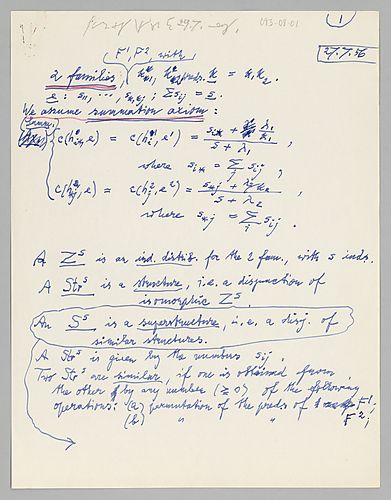 093-08-01
1
27.7.56
F¹, F², with
2 families, k₁, k₂ preds. k = k₁k₂.
e: s₁₁, ..., s_{k₁k₂}; Σ s_{ij} = s.
We assume summation axiom:
c(h¹, e) = c(h¹, e¹) = (s_{i*} + λ₁/k₁) / (s + λ₁),
where s_{i*} = Σ_j s_{ij},
c(h², e) = c(h², e²) = (s_{*j} + λ₂/k₂) / (s + λ₂)
where s_{*j} = Σ_i s_{ij}.
A Zˢ is an ind. distrib. for the 2 fam., with s inds.
A Strˢ is a structure, i.e. a disjunction of
isomorphic Zˢ.
An Sˢ is a superstructure, i.e. a disj. of
similar structures.
A Strˢ is given by the numbers s_{ij}.
Two Strˢ are similar, if one is obtained from
the other by any number (≥0) of the following
operations: (a) permutation of the preds of F¹,
(b) " " F²;